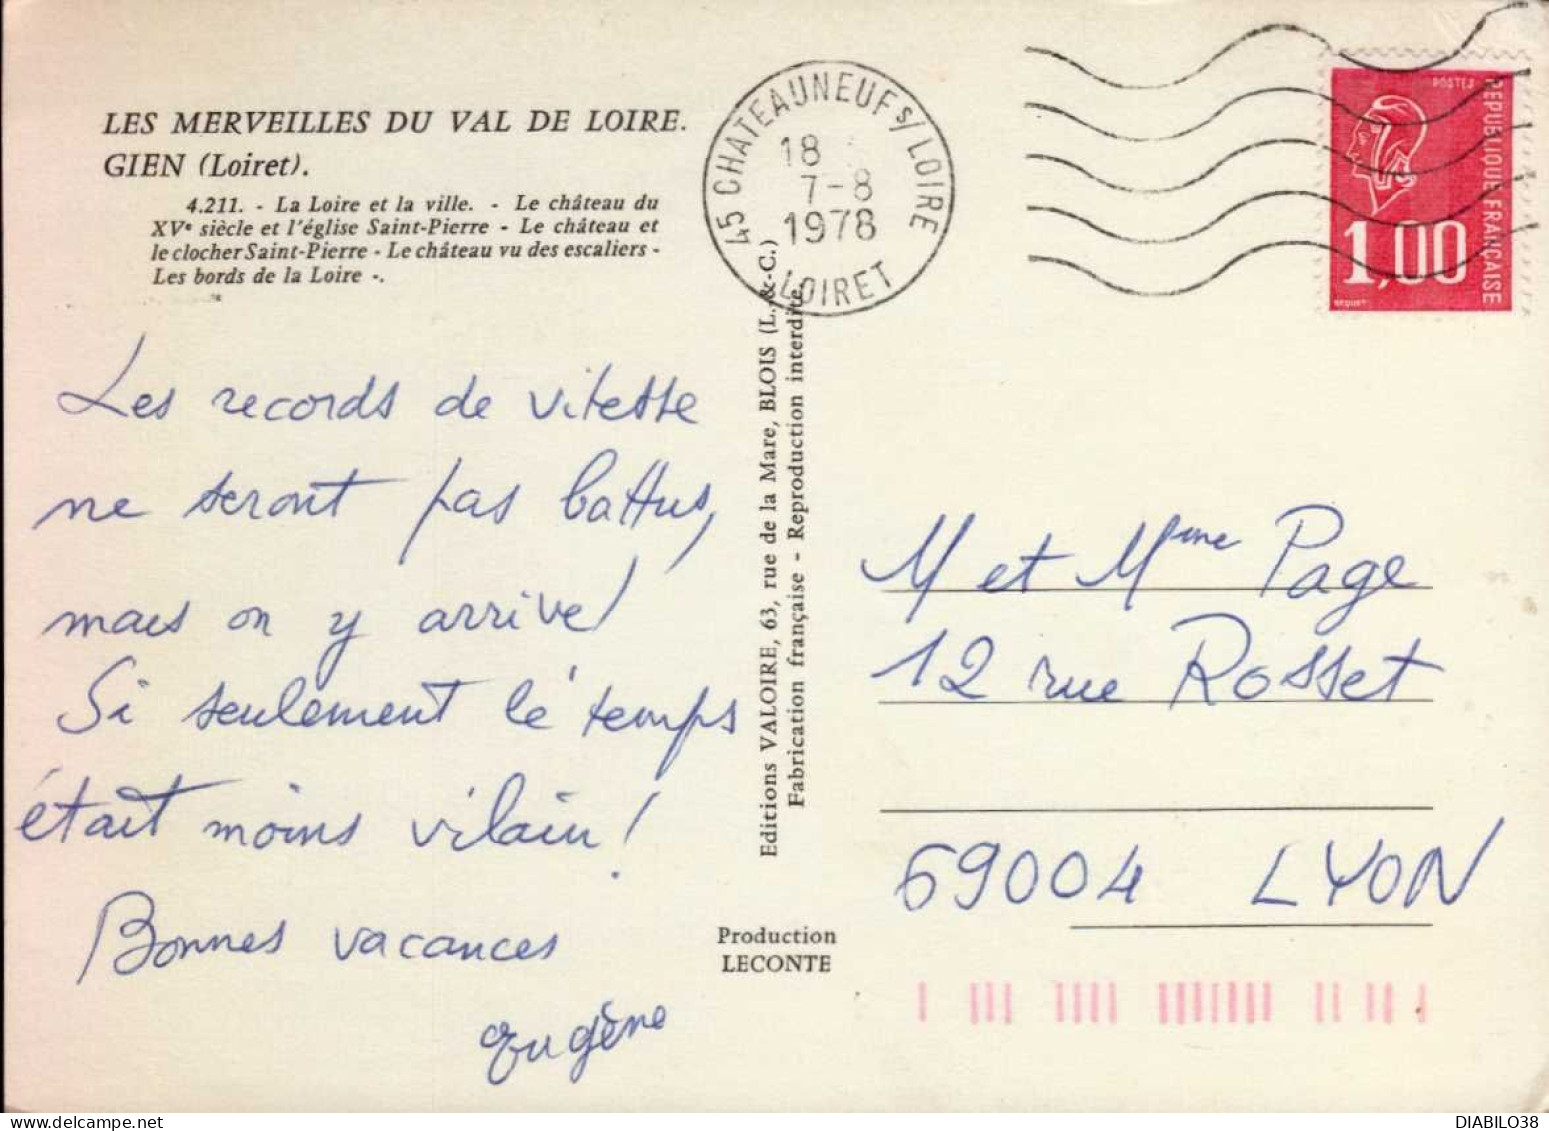 LES MERVEILLES DU VAL DE LOIRE.
GIEN (Loiret).
4.211. - La Loire et la ville. - Le château du
XVe siècle et l'église Saint-Pierre - Le château et
le clocher Saint-Pierre - Le château vu des escaliers -
Les bords de la Loire -.
45 CHATEAUNEUF S/LOIRE
18
7-8
1978
LOIRET
POSTES
REPUBLIQUE FRANÇAISE
1,00
BEQUET
Les records de vitesse
ne seront pas battus,
mais on y arrive !
Si seulement le temps
était moins vilain !
Bonnes vacances
Eugène
Editions VALOIRE, 63, rue de la Mare, BLOIS (L.-&-C.)
Fabrication française - Reproduction interdite
Production
LECONTE
M et Mme Page
12 rue Rosset
69004 LYON
DIABILO38